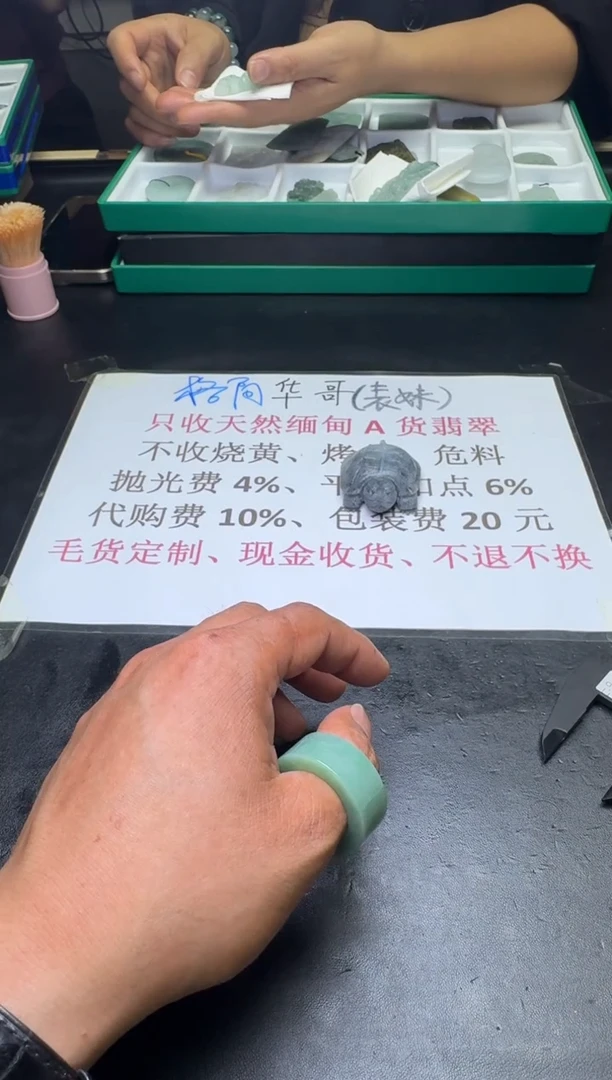 格局华哥(表妹)
只收天然缅甸 A 货翡翠
不收烧黄、烤 危料
抛光费 4%、平 扣点 6%
代购费 10%、包装费 20 元
毛货定制、现金收货、不退不换